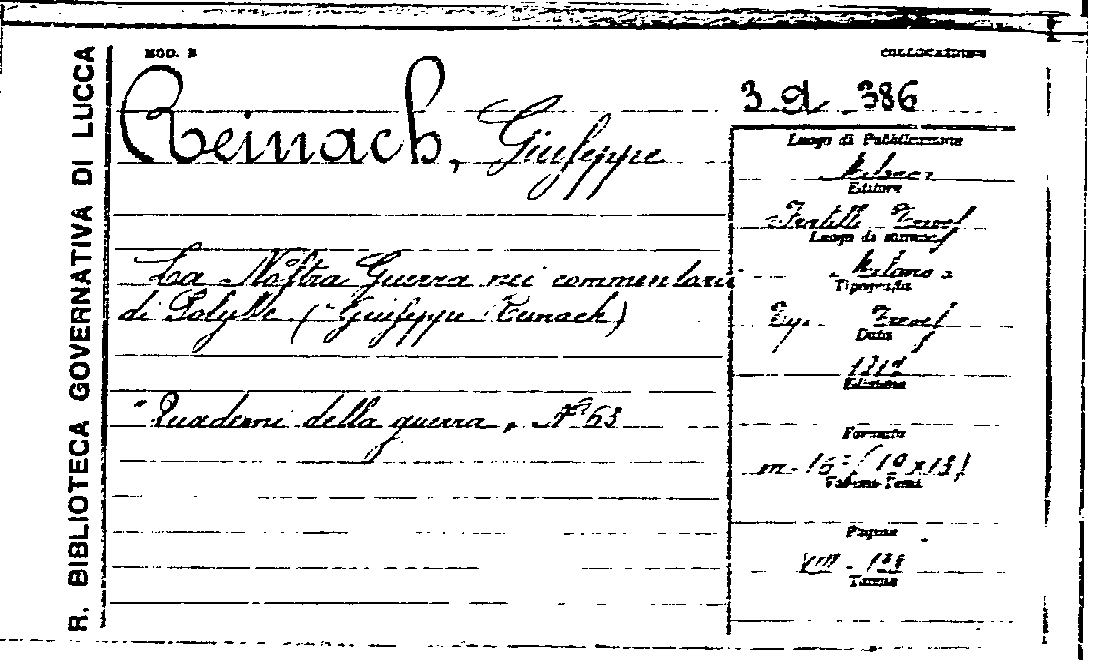 R. BIBLIOTECA GOVERNATIVA DI LUCCA
MOD. B
COLLOCAZIONE
Reinach, Giuseppe
3 386
Luogo di Pubblicazione
Milano
Editore
Fratelli Treves
Luogo di stampa
Milano
Tipografia
Tip. Treves
Data
Edizione
La Nostra Guerra nei commentarii
di Polybe (Giuseppe Reinach)
"Quaderni della guerra, N° 63
Formato
in-16°
Volumi-Tomi
Pagine
VIII -
Tavole